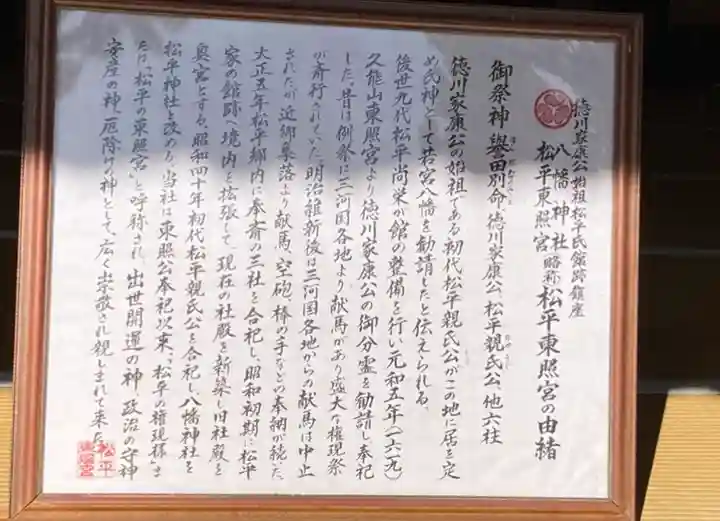 徳川家康公始祖松平氏館跡鎮座
八幡神社
松平東照宮 略称 松平東照宮の由緒
御祭神 誉田別命、徳川家康公、松平親氏公、他六柱
徳川家康公の始祖である初代松平親氏公がこの地に居を定
め氏神として若宮八幡を勧請したと伝えられる。
後世九代松平尚栄が館の整備を行い元和五年(一六一九)
久能山東照宮より徳川家康公の御分霊を勧請し奉祀
した。昔は例祭に三河国各地より献馬があり盛大な権現祭
が斉行されていた。明治維新後は三河国各地からの献馬は中止
されたが、近郷集落より献馬、空砲、棒の手などの奉納が続いた。
大正五年松平郷内に奉斎の三社を合祀し、昭和初期に松平
家の館跡へ境内を拡張して、現在の社殿を新築し旧社殿を
奥宮とする。昭和四十年初代松平親氏公を合祀し、八幡神社を
松平神社と改めり。当社は東照公奉祀以来、「松平の権現様」ま
たは「松平の東照宮」と呼称され、出世開運の神、政治の守神
安産の神、厄除けの神として、広く崇敬され親しまれて来た。
松平
東照宮